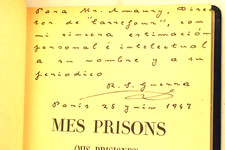 Para Mr. Amaury, Direc
tor de "Carrefour", con
mi sincera estimación
personal e intelectual
a su nombre y a su
periodico
A. S. Guerra
Paris 25 juin 1947
MES PRISONS
(MIS PRISIONES)